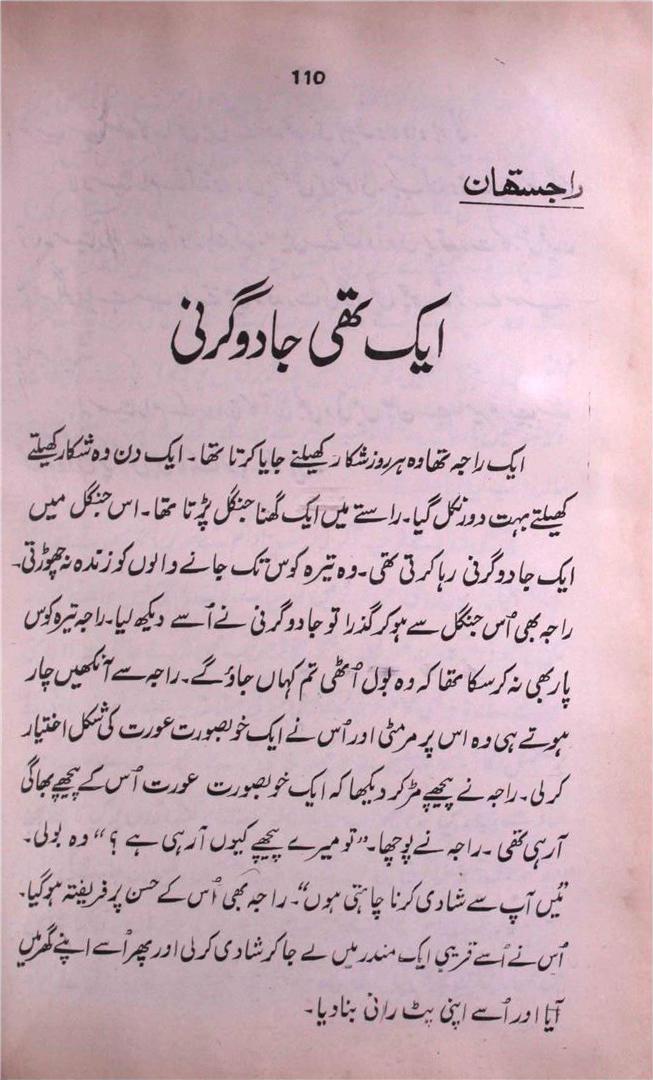 110
راجستھان
ایک تھی جادوگرنی
ایک راجہ تھا وہ ہر روز شکار کھیلنے جایا کرتا تھا۔ ایک دن وہ شکار کھیلتے
کھیلتے بہت دور نکل گیا۔ راستے میں ایک گھنا جنگل پڑتا تھا۔ اس جنگل میں
ایک جادوگرنی رہا کرتی تھی۔ وہ تیرہ کوس تک جانے والوں کو زندہ نہ چھوڑتی۔
راجہ بھی اُس جنگل سے ہو کر گذرا تو جادوگرنی نے اُسے دیکھ لیا۔ راجہ تیرہ کوس
پار بھی نہ کر سکا تھا کہ وہ بول اُٹھی تم کہاں جاؤ گے۔ راجہ سے آنکھیں چار
ہوتے ہی وہ اس پر مر مٹی اور اُس نے ایک خوبصورت عورت کی شکل اختیار
کر لی۔ راجہ نے پیچھے مڑ کر دیکھا کہ ایک خوبصورت عورت اُس کے پیچھے بھاگی
آرہی تھی۔ راجہ نے پوچھا۔ ”تو میرے پیچھے کیوں آرہی ہے ؟“ وہ بولی۔
”میں آپ سے شادی کرنا چاہتی ہوں“۔ راجہ بھی اُس کے حسن پر فریفتہ ہوگیا۔
اُس نے اُسے قریبی ایک مندر میں لے جا کر شادی کر لی اور پھر اُسے اپنے گھر میں
آیا اور اُسے اپنی پٹ رانی بنا دیا۔